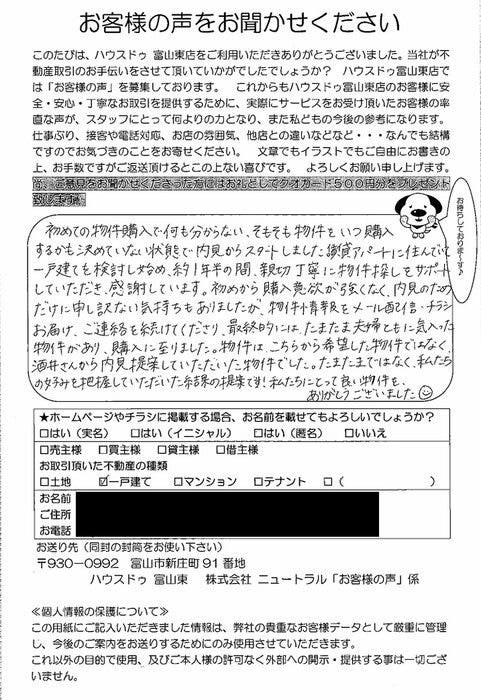 お客様の声をお聞かせください
このたびは、ハウスドゥ 富山東店をご利用いただきありがとうございました。当社が不
動産取引のお手伝いをさせて頂いていかがでしたでしょうか？ ハウスドゥ富山東店で
は 「お客様の声」を募集しております。 これからもハウスドゥ富山東店のお客様に安
全・安心・丁寧なお取引を提供するために、実際にサービスをお受け頂いたお客様の率
直な声が、スタッフにとって何よりの力となり、また私どもの今後の参考になります。
仕事ぶり、接客や電話対応、お店の雰囲気、他店との違いなどなど・・・なんでも結構
ですのでお気づきのことをお寄せください。 文章でもイラストでもご自由にお書きの
上、お手数ですがご返送頂けるとこの上ない喜びです。 よろしくお願い申し上げます。
尚、ご意見をお聞かせくださった方にはお礼としてクオカード500円分をプレゼント
致します。
お待ちしております♪
初めての物件購入で何も分からない、そもそも物件をいつ購入
するかも決めていない状態で内見からスタートしました。賃貸アパートに住んでいて
一戸建てを検討し始め、約1年半の間、親切丁寧に物件探しをサポート
していただき、感謝しています。初めから購入意欲が強くなく、内見のため
だけに申し訳ない気持ちもありましたが、物件情報をメール配信・チラシ
お届け、ご連絡を続けてくださり、最終的には、たまたま夫婦ともに気に入った
物件があり、購入に至りました。物件は、こちらから希望した物件ではなく、
酒井さんから内見提案していただいた物件でした。たまたまではなく、私たち
の好みを把握していただいた結果の提案です！私たちにとって良い物件を、
ありがとうございました
★ホームページやチラシに掲載する場合、お名前を載せてもよろしいでしょうか？
□はい（実名） □はい（イニシャル） □はい（匿名） □いいえ
□売主様 □買主様 □貸主様 □借主様
お取引頂いた不動産の種類
□土地 ☑一戸建て □マンション □テナント □（ ）
お名前
ご住所
お電話
お送り先（同封の封筒をお使い下さい）
〒930-0992 富山市新庄町91番地
ハウスドゥ 富山東 株式会社 ニュートラル「お客様の声」係
≪個人情報の保護について≫
この用紙にご記入いただきました情報は、弊社の貴重なお客様データとして厳重に管理
し、今後のご案内をお送りするためにのみ使用させていただきます。
これ以外の目的で使用、及びご本人様の許可なく外部への開示・提供する事は一切ござ
いません。